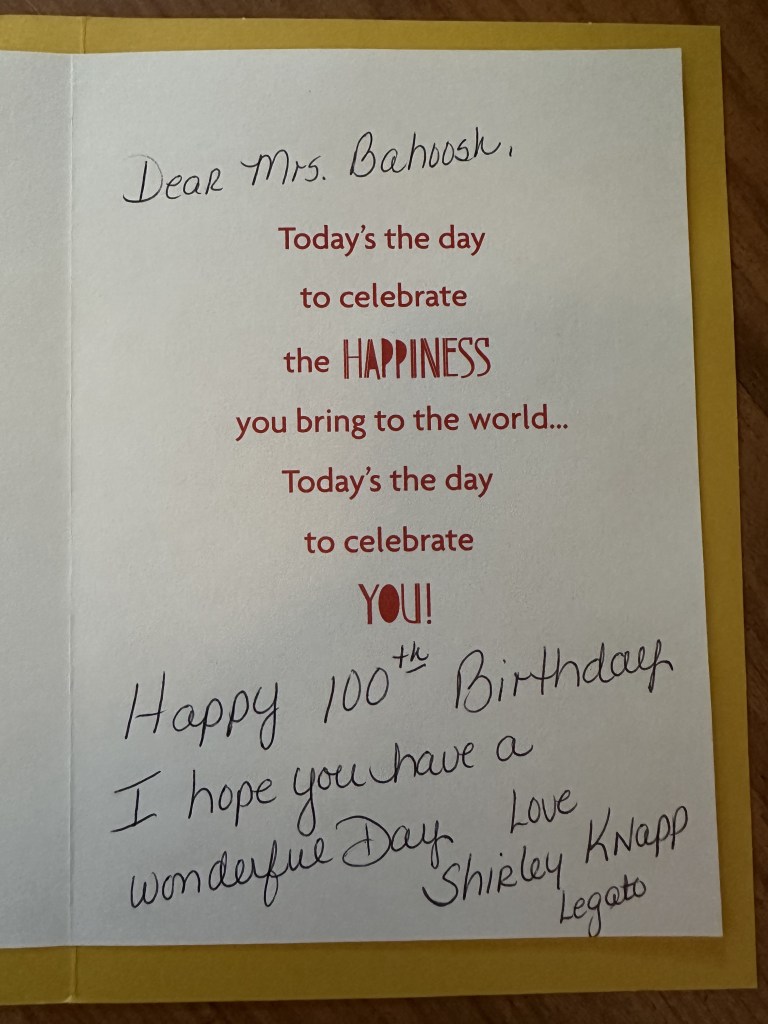 Dear Mrs. Bahoosh,
Today's the day
to celebrate
the HAPPINESS
you bring to the world...
Today's the day
to celebrate
YOU!
Happy 100th Birthday
I hope you have a
wonderful Day
Love
Shirley Knapp
Legato